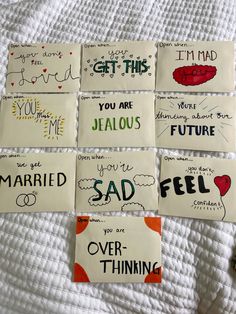 Open when...
you don't
FEEL
Loved
Open when...
you
GET THIS
Open when...
I'M MAD
Open when...
YOU
Miss
ME
Open when...
YOU ARE
JEALOUS
Open when...
YOU'RE
thinking about our
FUTURE
Open when...
we get
MARRIED
Open when...
you're
SAD
Open when...
you
FEEL
Confident
Open when...
you are
OVER-
THINKING